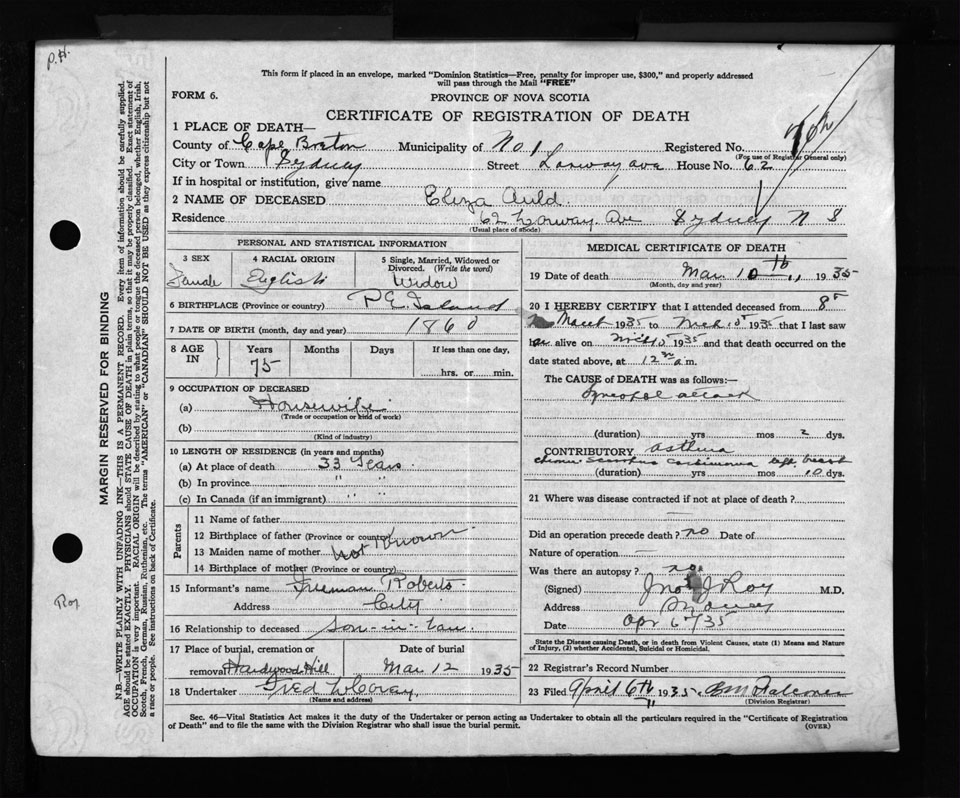 P.H.
This form if placed in an envelope, marked "Dominion Statistics—Free, penalty for improper use, $300," and properly addressed
will pass through the Mail "FREE"
FORM 6.
PROVINCE OF NOVA SCOTIA
CERTIFICATE OF REGISTRATION OF DEATH
1 PLACE OF DEATH—
County of Cape Breton Municipality of No 1 Registered No.
(For use of Registrar General only)
City or Town Sydney Street House No. 62
If in hospital or institution, give name
2 NAME OF DECEASED Eliza Auld.
Residence 62 Ave Sydney N S
(Usual place of abode)
PERSONAL AND STATISTICAL INFORMATION
3 SEX
Female
4 RACIAL ORIGIN
English
5 Single, Married, Widowed or
Divorced. (Write the word)
Widow
6 BIRTHPLACE (Province or country) P E Island
7 DATE OF BIRTH (month, day and year) 1860
8 AGE
IN
Years Months Days If less than one day,
75 hrs. or min.
9 OCCUPATION OF DECEASED
(a) Housewife
(Trade or occupation or kind of work)
(b)
(Kind of industry)
10 LENGTH OF RESIDENCE (in years and months)
(a) At place of death 33 Years
(b) In province " "
(c) In Canada (if an immigrant) " "
Parents
11 Name of father
12 Birthplace of father (Province or country)
13 Maiden name of mother Not Known
14 Birthplace of mother (Province or country)
15 Informant's name Freeman Roberts
Address City
16 Relationship to deceased Son-in-law
17 Place of burial, cremation or
removal Hardwood Hill
Date of burial
Mar 12 1935
18 Undertaker Fred
(Name and address)
MEDICAL CERTIFICATE OF DEATH
19 Date of death Mar 10th, 1935
(Month, day and year)
20 I HEREBY CERTIFY that I attended deceased from 8
March 1935 to Mch 10 1935 that I last saw
her alive on Mch 10 1935 and that death occurred on the
date stated above, at 12 a.m.
The CAUSE of DEATH was as follows:—
attack
(duration) yrs mos 2 dys.
CONTRIBUTORY asthma
left breast
(duration) yrs mos 10 dys.
21 Where was disease contracted if not at place of death?
Did an operation precede death? no Date of
Nature of operation —
Was there an autopsy? no
(Signed) Jno J Roy M.D.
Address Sydney
Date Apr 6/35
State the Disease causing Death, or in death from Violent Causes, state (1) Means and Nature
of Injury, (2) whether Accidental, Suicidal or Homicidal.
22 Registrar's Record Number
23 Filed April 6th 1935
(Division Registrar)
Sec. 46—Vital Statistics Act makes it the duty of the Undertaker or person acting as Undertaker to obtain all the particulars required in the "Certificate of Registration
of Death" and to file the same with the Division Registrar who shall issue the burial permit.
(OVER)
MARGIN RESERVED FOR BINDING
N.B.—WRITE PLAINLY WITH UNFADING INK—THIS IS A PERMANENT RECORD. Every item of information should be carefully supplied.
AGE should be stated EXACTLY. PHYSICIANS should STATE CAUSE OF DEATH in plain terms, so that it may be properly classified. Exact statement of
OCCUPATION is very important. RACIAL ORIGIN will be described by stating to what people or tongue the deceased person belonged, whether English, Irish,
Scotch, French, German, Russian, Ruthenian, etc. The terms "AMERICAN" or "CANADIAN" SHOULD NOT BE USED as they express citizenship but not
a race or people. See instructions on back of Certificate.
Roy